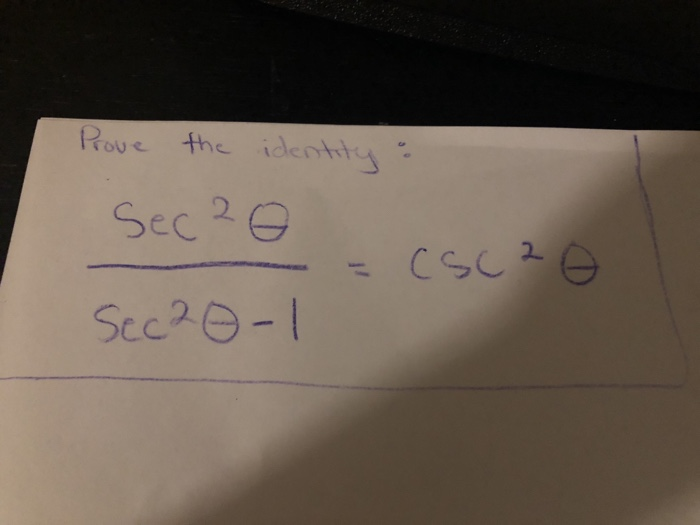 Prove the identity:
sec²θ
/
sec²θ-1
= csc²θ